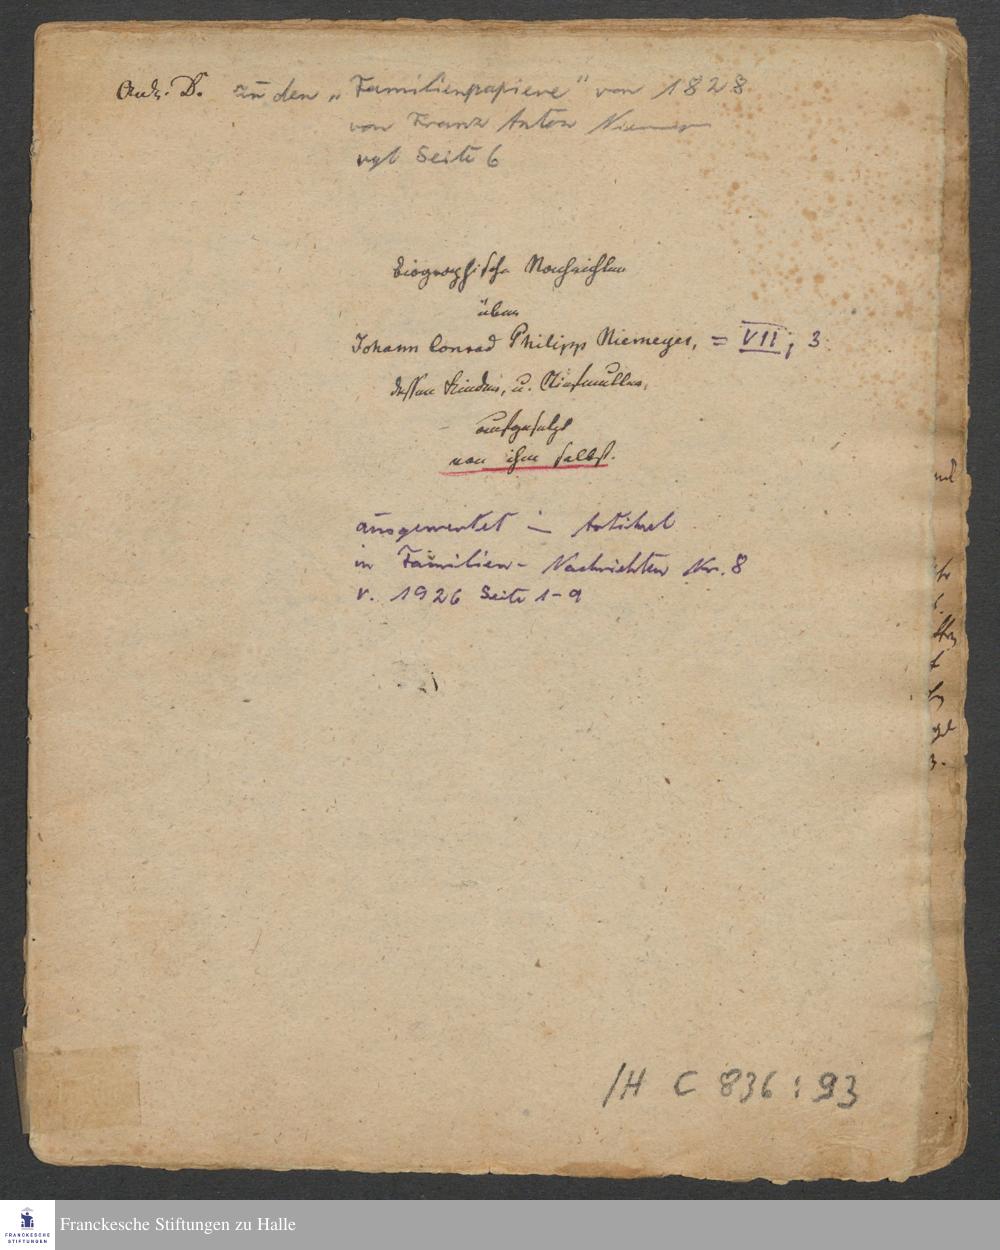 Anh. D. zu den „Familienpapiere" von 1828
von Franz Anton Niemeyer
vgl Seite 6
Biographische Nachrichten
über
Johann Conrad Philipp Niemeyer, = VII; 3
dessen Kinder, u.
aufgesetzt
von ihm selbst.
ausgewertet im Artikel
in Familien-Nachrichten Nr. 8
v. 1926 Seite 1-9
/H C 836:93
FRANCKESCHE
STIFTUNGEN
Franckesche Stiftungen zu Halle